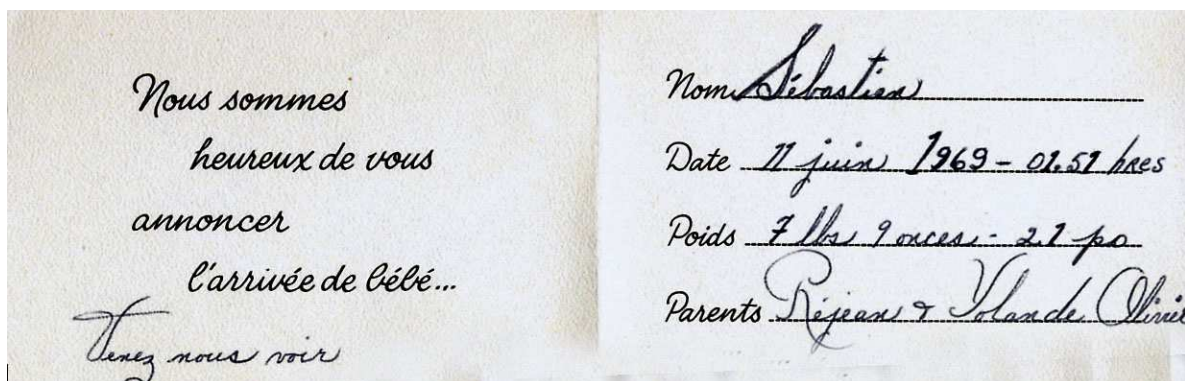 Nous sommes
heureux de vous
annoncer
l'arrivée de bébé...
Venez nous voir
Nom Sébastien
Date 11 juin 1969 - 01.51 hres
Poids 7 lbs 9 onces - 21 po
Parents Réjean & Yolande Olivier